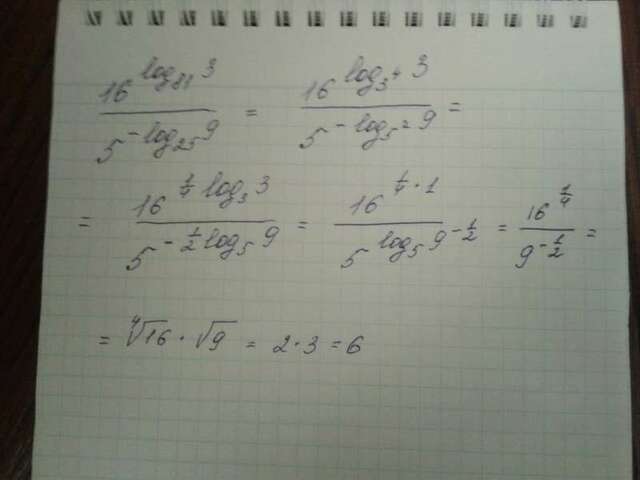 16^{log_{81} 3} / 5^{-log_{25} 9} = 16^{log_{3^4} 3} / 5^{-log_{5^2} 9} =
= 16^{1/4 log_3 3} / 5^{-1/2 log_5 9} = 16^{1/4 · 1} / 5^{log_5 9^{-1/2}} = 16^{1/4} / 9^{-1/2} =
= ∜16 · √9 = 2 · 3 = 6